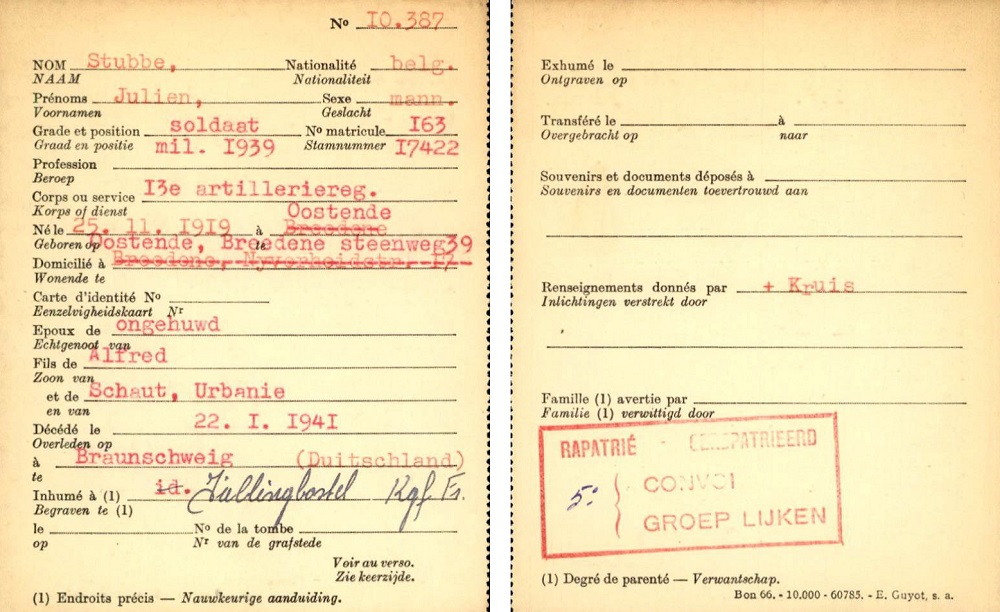 Nº IO.387
NOM Stubbe, Nationalité belg.
NAAM Nationaliteit
Prénoms Julien, Sexe mann.
Voornamen Geslacht
Grade et position soldaat Nº matricule I63
Graad en positie mil. I939 Stamnummer I7422
Profession
Beroep
Corps ou service I3e artilleriereg.
Korps of dienst Oostende
Né le 25. II. I9I9 à Breedene
Geboren op te Oostende, Breedene steenweg39
Domicilié à Breedene, Nyverheidstr. I7
Wonende te
Carte d'identité Nº
Eenzelvigheidskaart Nr
Epoux de ongehuwd
Echtgenoot van
Fils de Alfred
Zoon van
et de Schaut, Urbanie
en van
Décédé le 22. I. I94I
Overleden op
à Braunschweig (Duitschland)
te
Inhumé à (1) id. Fallingbostel Kgf Fr.
Begraven te (1)
le Nº de la tombe
op Nr van de grafstede
Voir au verso.
Zie keerzijde.
(1) Endroits précis — Nauwkeurige aanduiding.
Exhumé le
Ontgraven op
Transféré le à
Overgebracht op naar
Souvenirs et documents déposés à
Souvenirs en documenten toevertrouwd aan
Renseignements donnés par + Kruis
Inlichtingen verstrekt door
Famille (1) avertie par
Familie (1) verwittigd door
RAPATRIÉ - GEREPATRIEERD
5e { CONVOI
GROEP LIJKEN
(1) Degré de parenté — Verwantschap.
Bon 66. - 10.000 - 60785. - E. Guyot, s. a.